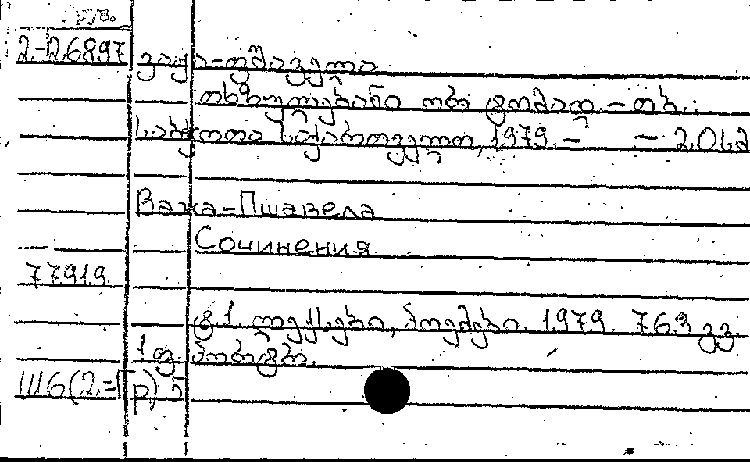 2-26897 ვაჟა-ფშაველა
თხზულებანი ორ ტომად. – თბ.:
საბჭოთა საქართველო, 1979. – – 2.01მ
Важа-Пшавела
Сочинения
77919
ტ.1. ლექსები, პოემები. 1979. 763 გვ.
1 ფ. პორტრ.